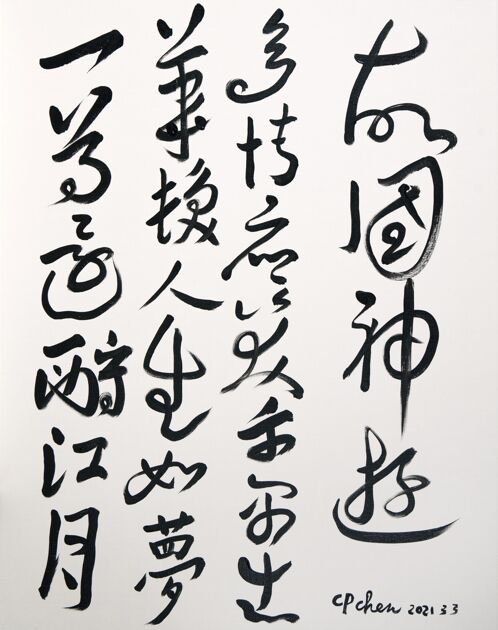 故國神遊
多情應笑我早生
華髮人生如夢
一尊還酹江月
CPchen 2021 3 3